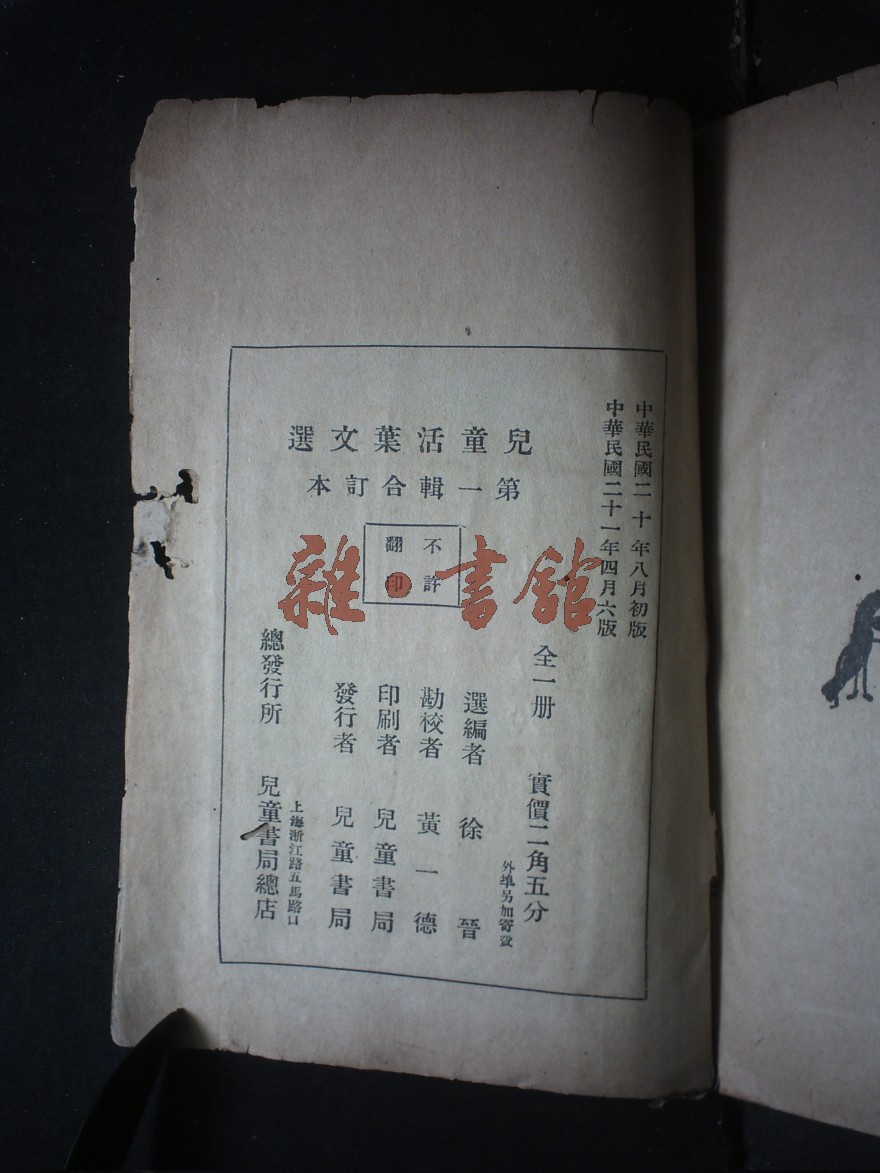 中華民國二十年八月初版
中華民國二十一年四月六版
兒童活葉文選
第一輯合訂本
不許
翻印
全一册 實價二角五分
外埠另加寄費
選編者 徐晉
勘校者 黃一德
印刷者 兒童書局
發行者 兒童書局
上海浙江路五馬路口
總發行所 兒童書局總店
雜·書館